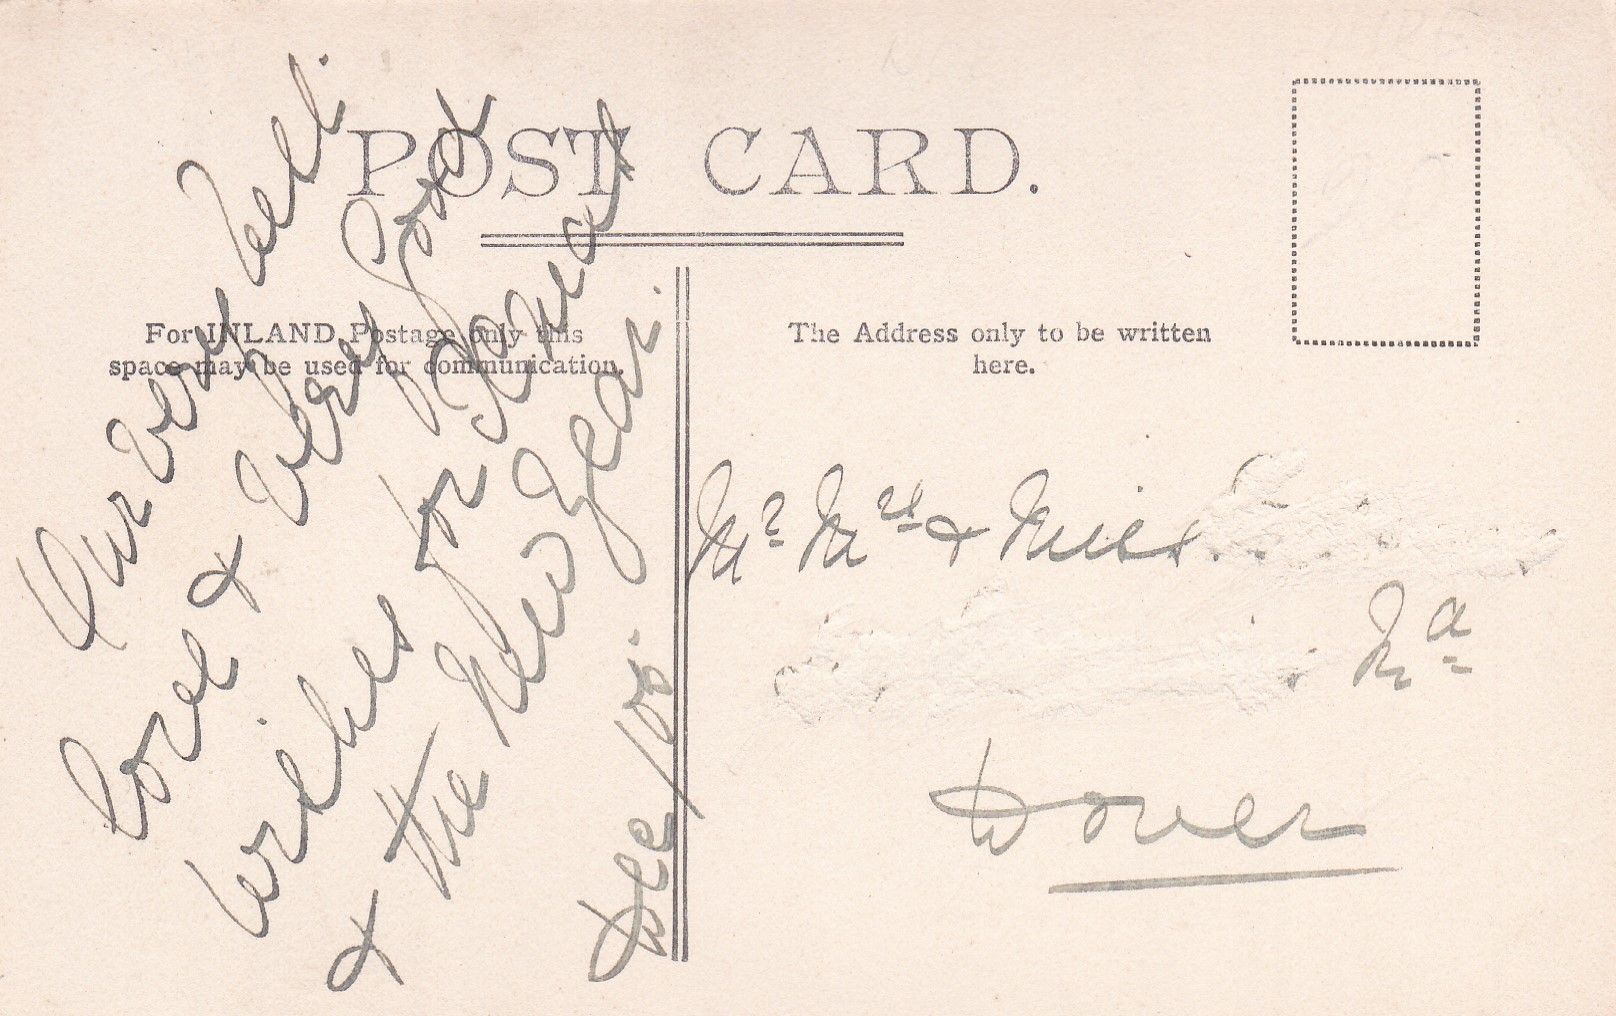 POST CARD.
For INLAND Postage only this
space may be used for communication.
The Address only to be written
here.
Our very
Love & very Good
Wishes for Xmas
& the New Year.
Dec/05.
Mr Mrs & Miss
Rd
Dover